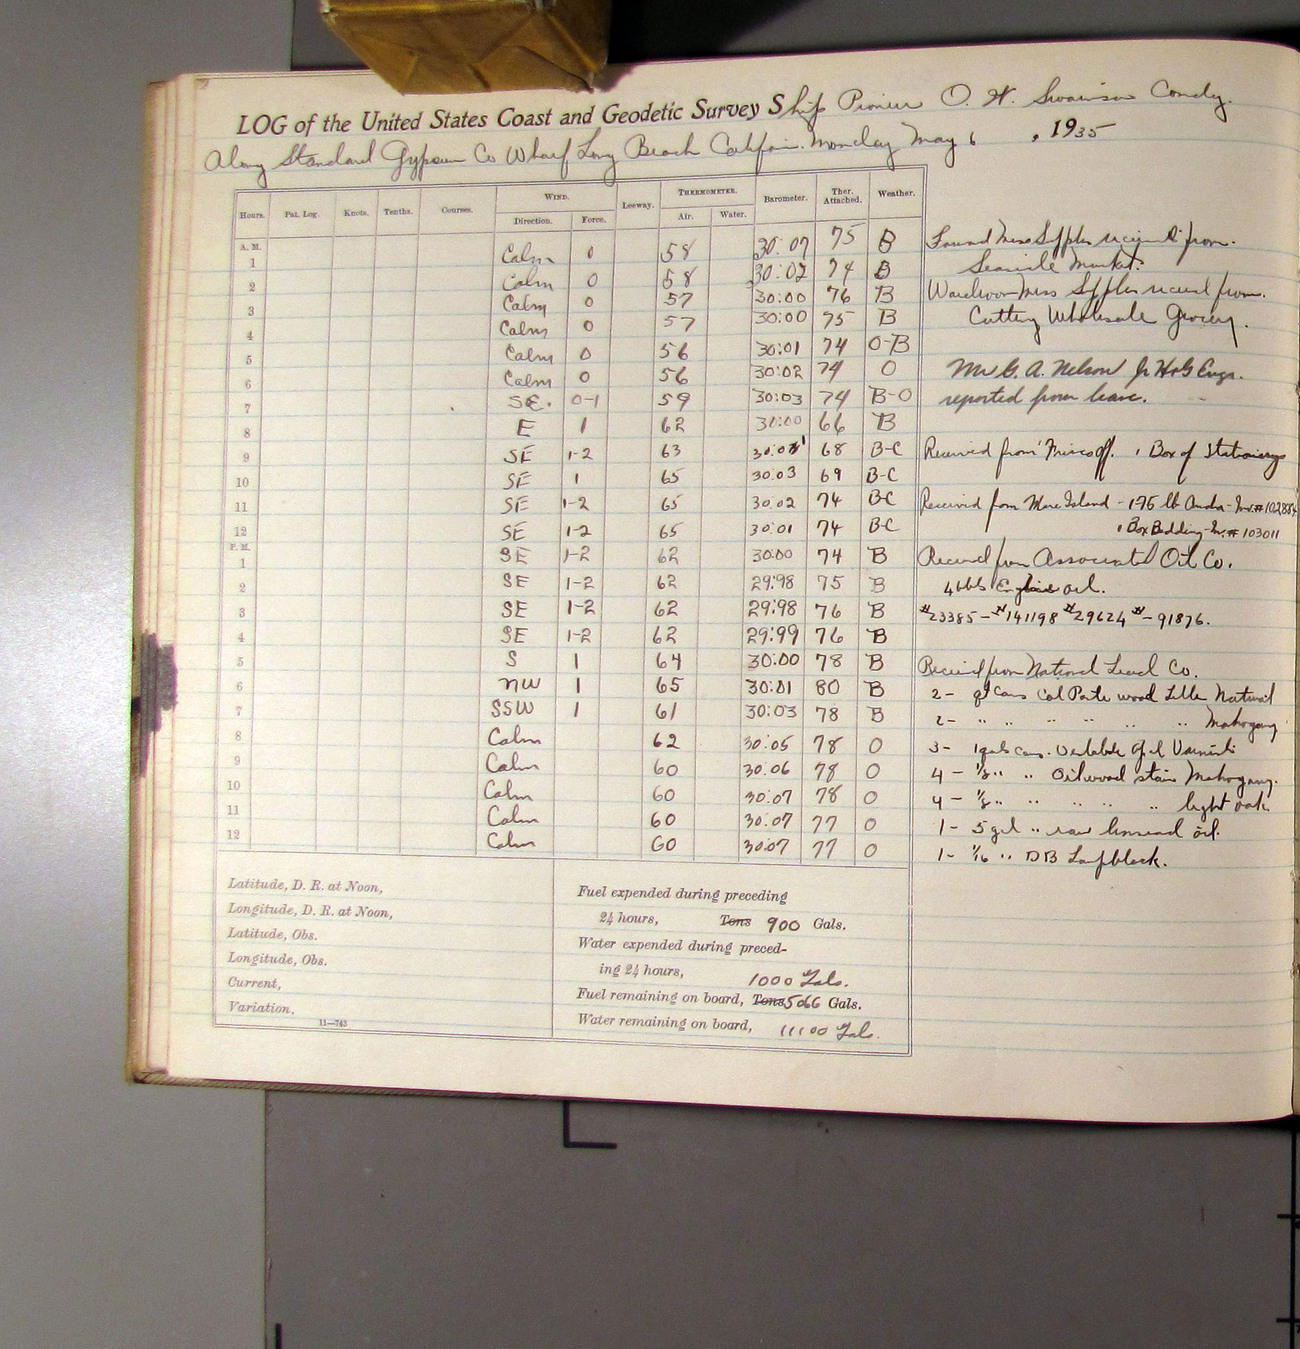 LOG of the United States Coast and Geodetic Survey Ship Pioneer O. W. Swainson Comdg.
Along Standard Gypsum Co Wharf Long Beach Californ. Monday May 6, 1935
Hours. Pat. Log. Knots. Tenths. Courses. WIND. Leeway. THERMOMETER. Barometer. Ther. Attached. Weather.
Direction. Force. Air. Water.
A. M.
1 Calm 0 58 30:07 75 B
2 Calm 0 58 30:02 74 B
3 Calm 0 57 30:00 76 B
4 Calm 0 57 30:00 75 B
5 Calm 0 56 30:01 74 O-B
6 Calm 0 56 30:02 74 O
7 SE. 0-1 59 30:03 74 B-O
8 E 1 62 30:00 66 B
9 SE 1-2 63 68 B-C
10 SE 1 65 30.03 69 B-C
11 SE 1-2 65 30.02 74 BC
12 SE 1-2 65 30.01 74 BC
P. M.
1 SE 1-2 62 30:00 74 B
2 SE 1-2 62 29:98 75 B
3 SE 1-2 62 29:98 76 B
4 SE 1-2 62 29:99 76 B
5 S 1 64 30:00 78 B
6 NW 1 65 30:01 80 B
7 SSW 1 61 30:03 78 B
8 Calm 62 30:05 78 O
9 Calm 60 30.06 78 O
10 Calm 60 30:07 78 O
11 Calm 60 30:07 77 O
12 Calm 60 30:07 77 O
Mess Supplies received from
Seaside Market.
Wardroom Mess Supplies received from
Cutting Wholesale Grocery.
Mr G. A. Nelson Jr H&G Engr.
reported from leave.
Received from 1 Box of Stationery
Received from Mare Island - 175 lb Inv.# 102884
1 Box Bedding - Inv.# 103011
Received from Associated Oil Co.
4 bbls Engine oil.
#23385 - #141198 #29624 # - 91876.
Received from National Lead Co.
2 - qt cans wood Natural
2 - " " " " " " Mahogany
3 - 1 gal cans Varnish
4 - 1/8 " " Oil wood stain Mahogany.
4 - 1/8 " " " " " light oak
1 - 5 gal " raw linseed oil.
1 - 1/16 " DB Lampblack.
Latitude, D. R. at Noon,
Longitude, D. R. at Noon,
Latitude, Obs.
Longitude, Obs.
Current,
Variation,
11—743
Fuel expended during preceding
24 hours, Tons 900 Gals.
Water expended during preced-
ing 24 hours, 1000 Gals.
Fuel remaining on board, Tons 5066 Gals.
Water remaining on board, 11100 Gals.